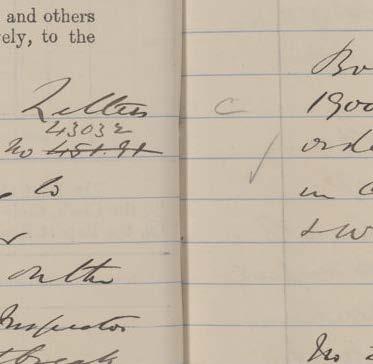 and others
ely, to the
Letters
43032
No 451.91
to
on the
Inspector
tbreak
c
Bo
190
orde
in
& W
No